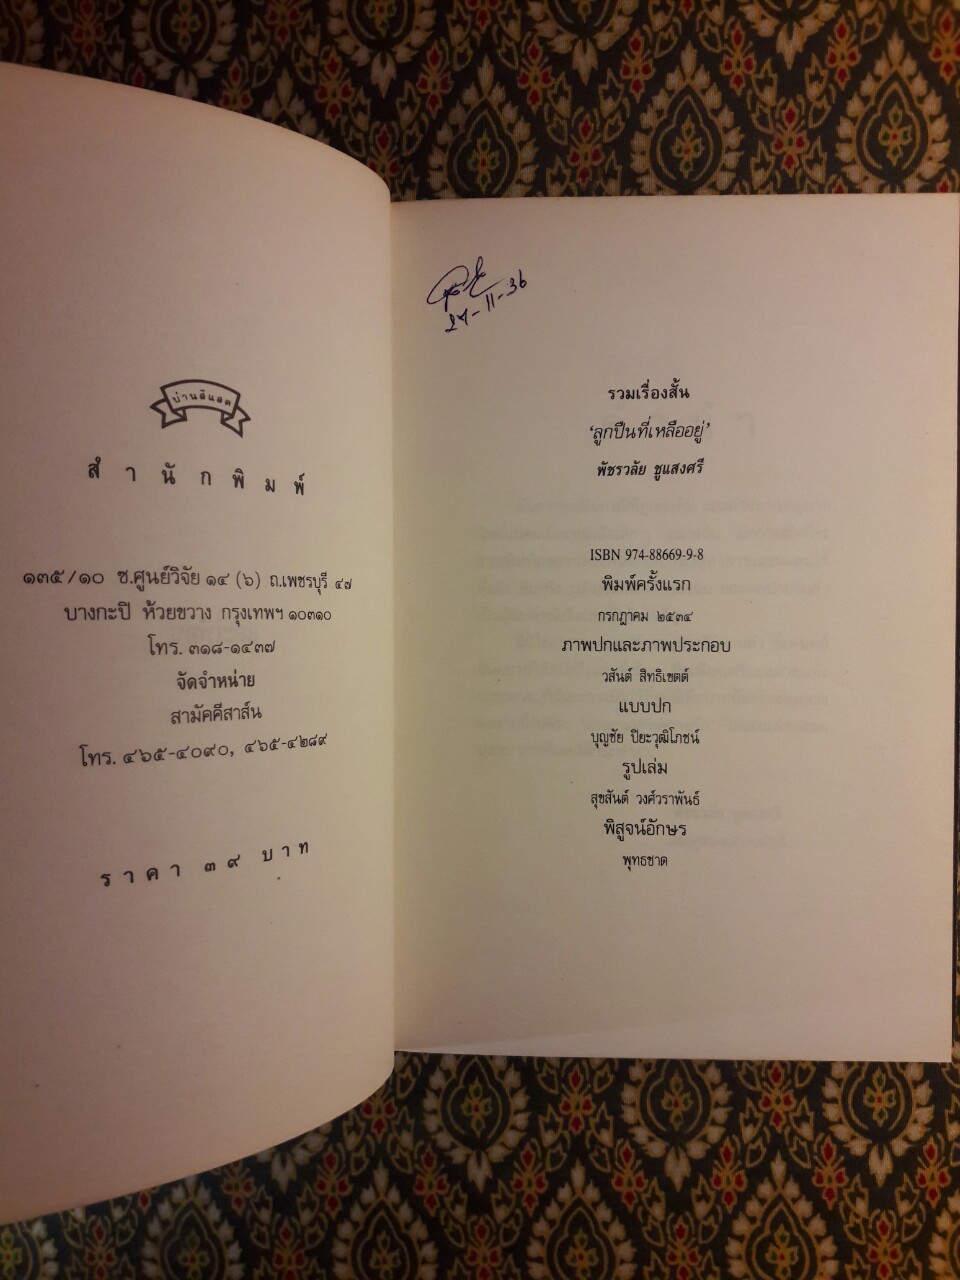 บ้านสีแสด
สำนักพิมพ์
๑๓๕/๑๐ ซ.ศูนย์วิจัย ๑๔ (๖) ถ.เพชรบุรี ๔๗
บางกะปิ ห้วยขวาง กรุงเทพฯ ๑๐๓๑๐
โทร. ๓๑๘-๑๔๓๗
จัดจำหน่าย
สามัคคีสาส์น
โทร. ๔๖๕-๔๐๙๐, ๔๖๕-๔๒๘๙
ราคา ๓๙ บาท
27-11-36
รวมเรื่องสั้น
'ลูกปืนที่เหลืออยู่'
พัชรวลัย ชูแสงศรี
ISBN 974-88669-9-8
พิมพ์ครั้งแรก
กรกฎาคม ๒๕๓๔
ภาพปกและภาพประกอบ
วสันต์ สิทธิเขตต์
แบบปก
บุญชัย ปิยะวุฒิโภชน์
รูปเล่ม
สุขสันต์ วงศ์วราพันธ์
พิสูจน์อักษร
พุทธชาด